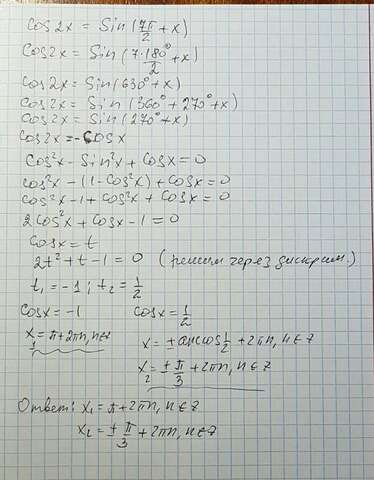 Cos2x = Sin(7π/2 + x)
Cos2x = Sin(7·180°/2 + x)
Cos2x = Sin(630° + x)
Cos2x = Sin(360° + 270° + x)
Cos2x = Sin(270° + x)
Cos2x = -Cosx
Cos²x - Sin²x + Cosx = 0
cos²x - (1 - Cos²x) + Cosx = 0
cos²x - 1 + cos²x + Cosx = 0
2cos²x + Cosx - 1 = 0
Cosx = t
2t² + t - 1 = 0 (решим через дискрим.)
t₁ = -1; t₂ = 1/2
Cosx = -1 Cosx = 1/2
x₁ = π + 2πn, n∈z x = ± arccos 1/2 + 2πn, n∈z
x₂ = ± π/3 + 2πn, n∈z
Ответ: x₁ = π + 2πn, n∈z
x₂ = ± π/3 + 2πn, n∈z